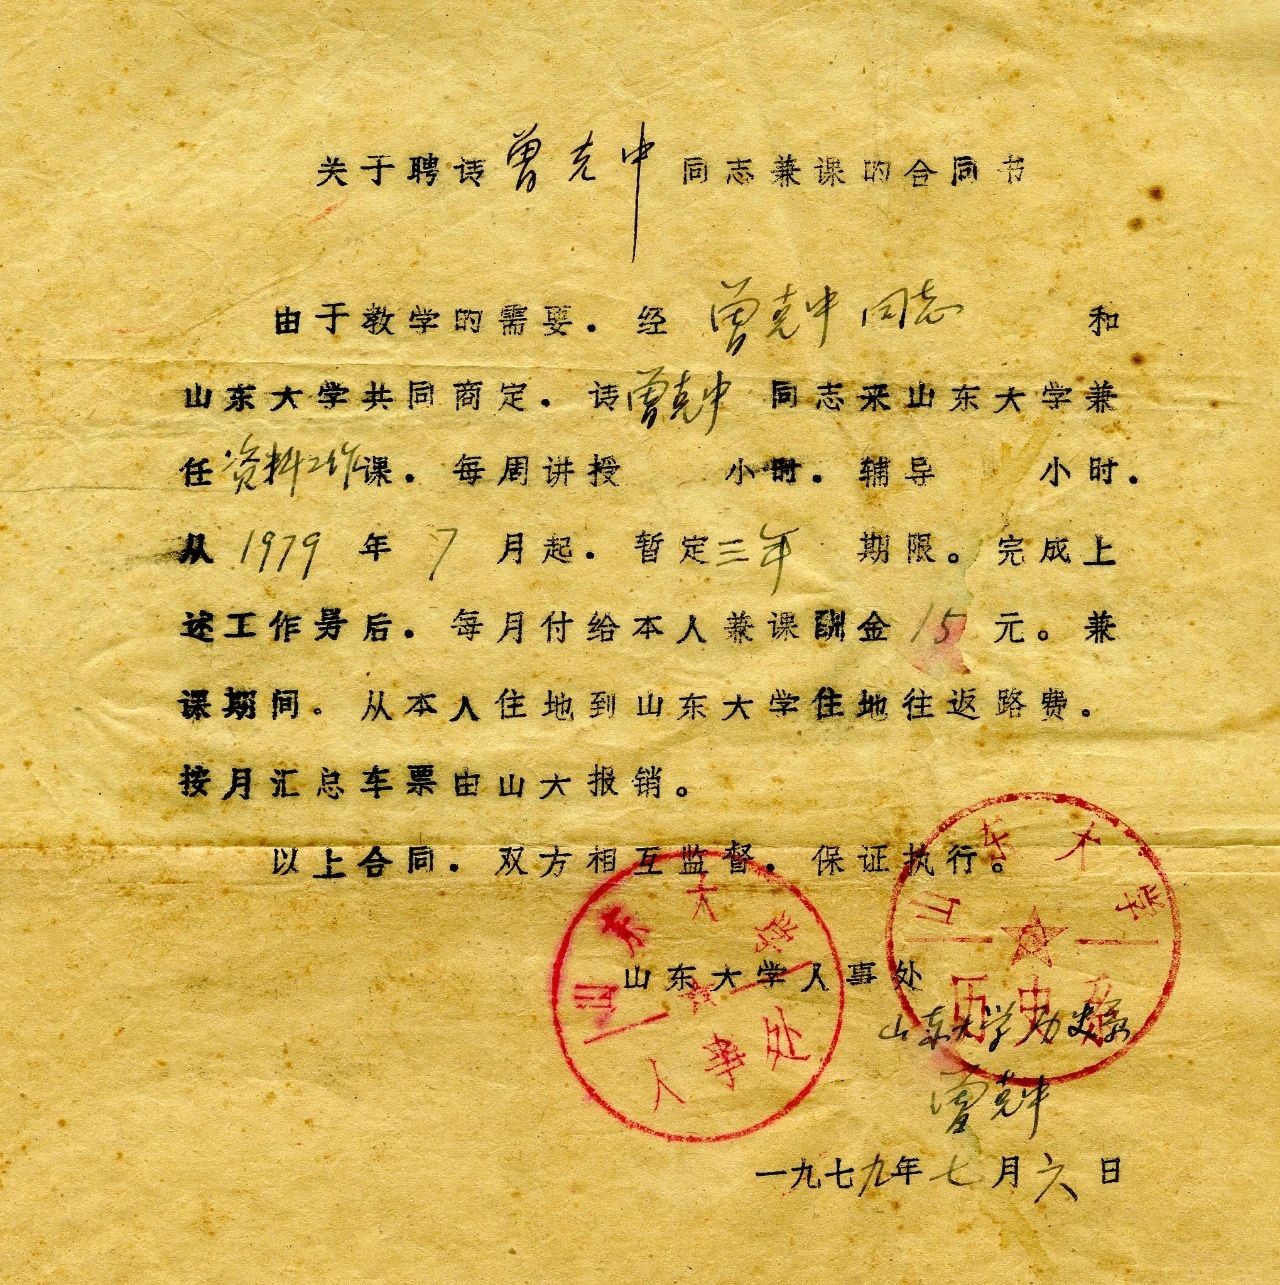 关于聘请曾克中同志兼课的合同书
由于教学的需要．经 曾克中同志 和
山东大学共同商定．请曾克中 同志来山东大学兼
任资料工作课．每周讲授 小时．辅导 小时．
从 1979 年 7 月起．暂定三年 期限。完成上
述工作量后．每月付给本人兼课酬金 15 元。兼
课期间。从本人住地到山东大学住地往返路费．
按月汇总车票由山大报销。
以上合同．双方相互监督．保证执行。
山东大学
历史系
山东大学
人事处
山东大学人事处
山东大学历史系
曾克中
一九七九年七月六日